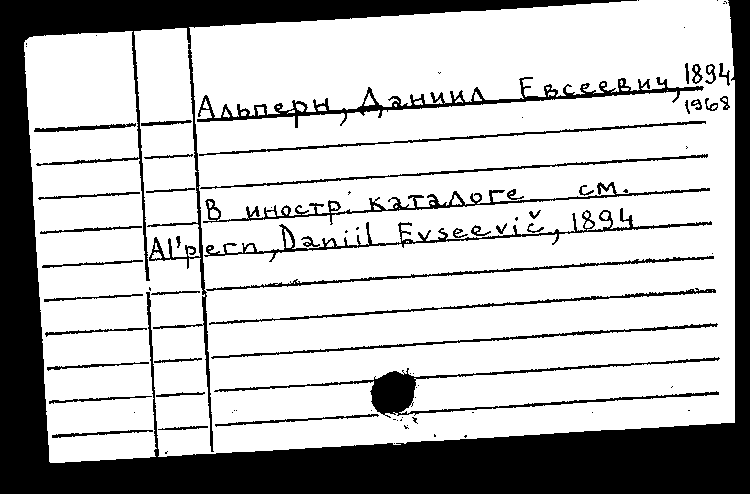 Альперн, Даниил Евсеевич, 1894-
1968
В иностр. каталоге см.
Al'pern, Daniil Evseevič, 1894